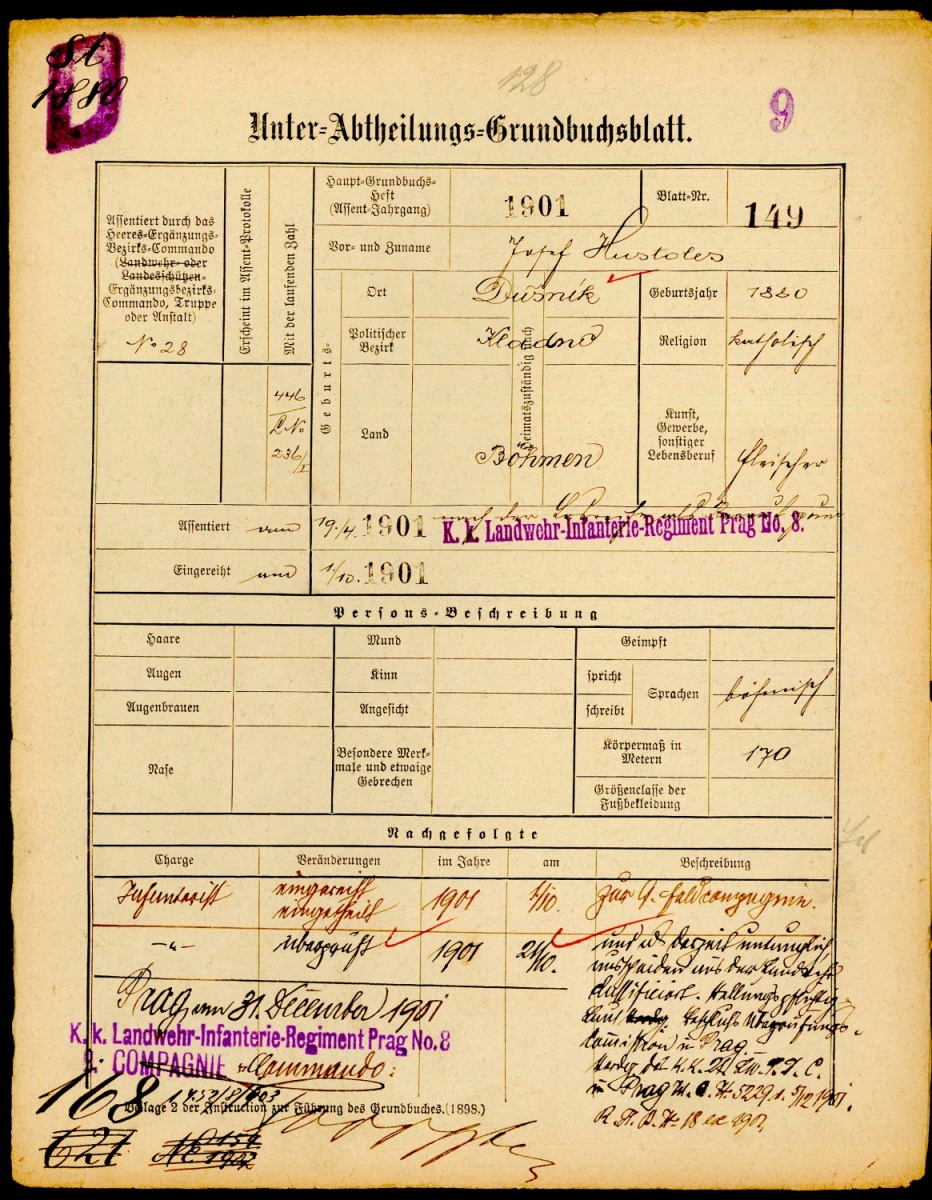 St
D
1880
128
9
Unter-Abtheilungs-Grundbuchsblatt.
Assentiert durch das
Heeres-Ergänzungs-
Bezirks-Commando
(Landwehr- oder
Landesschützen-
Ergänzungsbezirks-
Commando, Truppe
oder Anstalt)
No 28
Erscheint im Assent-Protokolle
Mit der laufenden Zahl
446
236/I
Haupt-Grundbuchs-
Heft
(Assent-Jahrgang)
1901
Blatt-Nr.
149
Vor- und Zuname
Josef Hustoles
Geburts-
Ort
Dušník
Geburtsjahr
1880
Politischer
Bezirk
Kladno
Heimatszuständig nach
Religion
katholisch
Land
Böhmen
Kunst,
Gewerbe,
sonstiger
Lebensberuf
Fleischer
Assentiert
am
19./4. 1901
nach der
K. k. Landwehr-Infanterie-Regiment Prag No. 8.
Eingereiht
am
1/10. 1901
Persons-Beschreibung
Haare
Mund
Geimpft
Augen
Kinn
spricht
Sprachen
böhmisch
Augenbrauen
Angesicht
schreibt
Nase
Besondere Merk-
male und etwaige
Gebrechen
Körpermaß in
Metern
170
Größenclasse der
Fußbekleidung
Nachgefolgte
Charge
Veränderungen
im Jahre
am
Beschreibung
Infanterist
eingereiht
eingetheilt
1901
1/10.
zur 9. Feldcompagnie.
-"-
überprüft
1901
21/10.
und als derzeit untauglich
aus der Landwehr
classificiert. Stellungspflichtig
laut Beschluß Überprüfungs-
commission in Prag
in Prag M. A. N. 5229 v. 5/12 1901.
Prag am 31. December 1901
K. k. Landwehr-Infanterie-Regiment Prag No. 8
9. COMPAGNIE Commando:
168
1453/8/903
Beilage 2 der Instruction zur Führung des Grundbuches. (1898.)
621